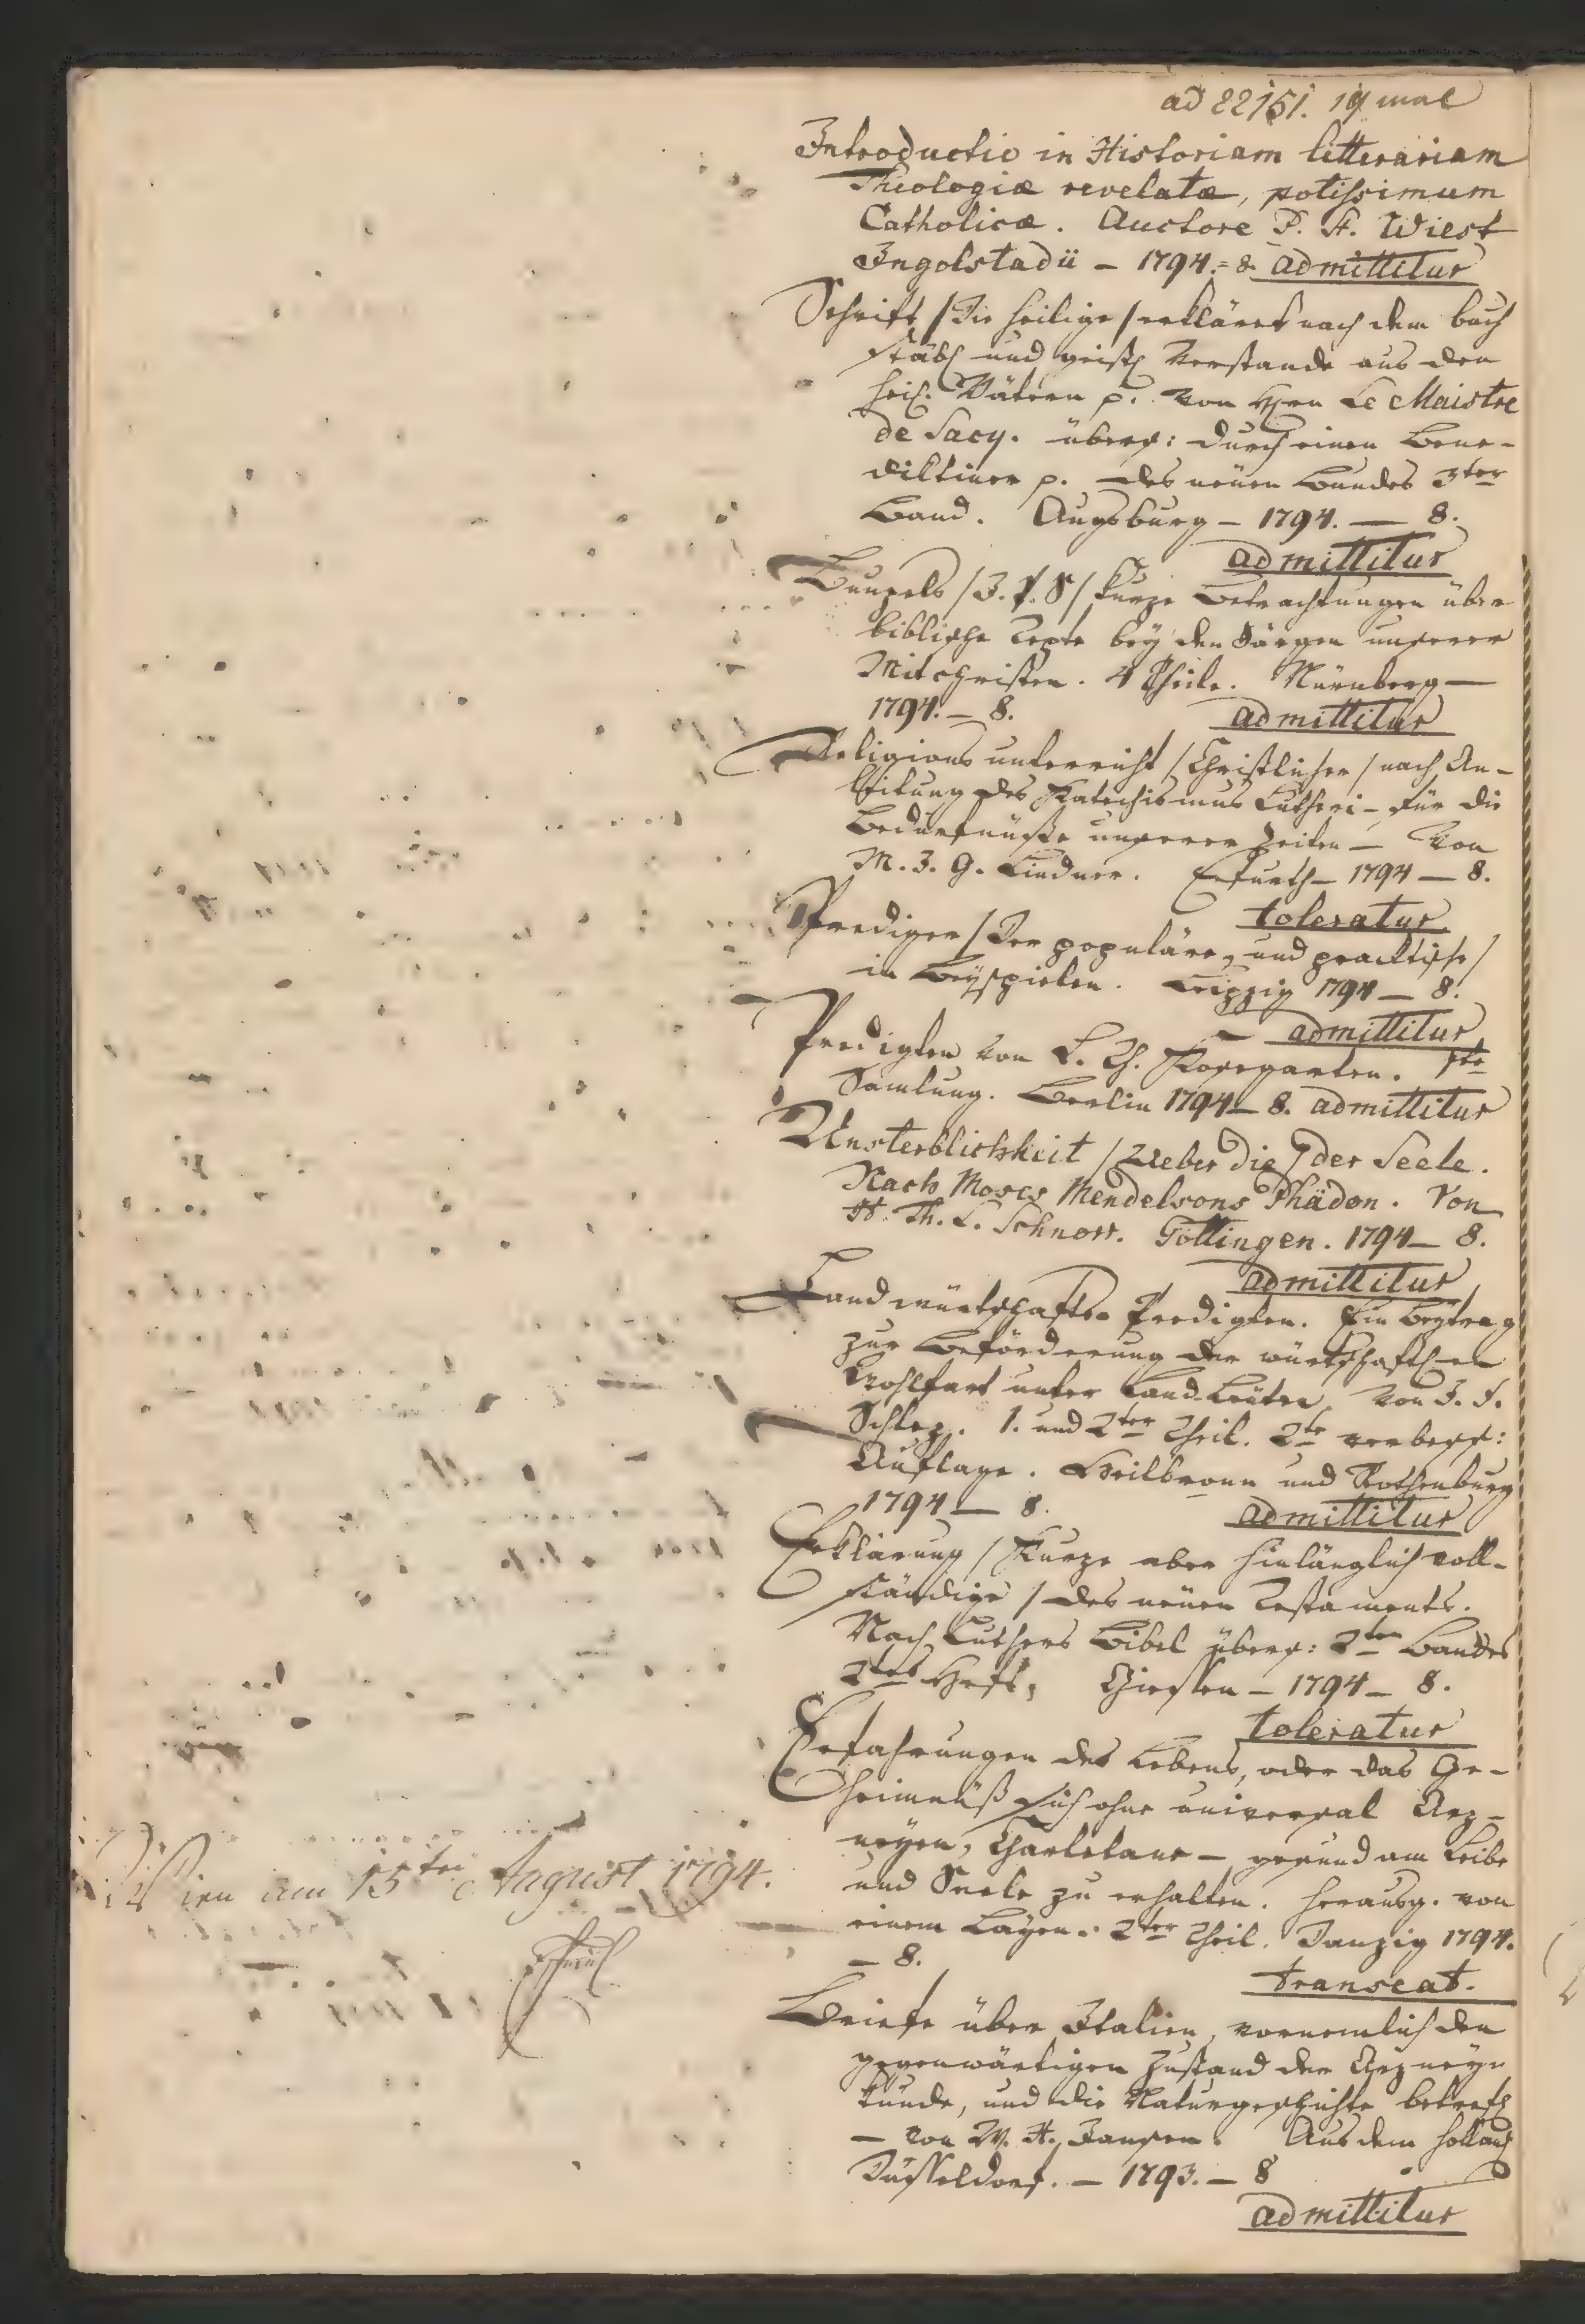 ad 22151. 19 mal
Introductio in Historiam litterariam
Theologiæ revelatæ, potissimum
Catholicæ. Auctore P. St. Wiest
Ingolstadii – 1794. = 8. admittitur
Schrift / Die heilige / erkläret nach dem buch
stäbl und geistl Verstande aus den
heil. Vätern p. von Hrn Le Maistre
de Sacy. übers: durch einen Bene-
diktiner p. des neüen Bundes 3ter
Band. Augsburg – 1794. — 8.
admittitur
/ kurze Betrachtungen über
biblische Texte bey den Särgen unserer
Mitchristen. 4 Theile. Nürnberg —
1794. – 8. admittitur
Religions unterricht / Christlicher / nach An-
leitung des Katechismus Lutheri – für die
Bedürfnüsse unserer Zeiten – Von
M. J. G. Lindner. Erfurth – 1794 — 8.
toleratur.
Prediger / Der populäre, und practische /
in Beyspielen. Leipzig 1794 — 8.
– admittitur
Predigten von L. Th. Kosegarten. 1te
Samlung. Berlin 1794 – 8. admittitur
Unsterblichkeit / Ueber die / der Seele.
Nach Moses Mendelsons Phädon. Von
H. Th. L. Schnorr. Göttingen. 1794 – 8.
admittitur
Landwürtschafts Predigten. Ein Beytrag
zur Beförderung der würtschaftl-en
Wohlfart unter Land-Leüten. Von J. F.
Schlez. 1. und 2ter Theil. 2te verbess:
Auflage. Heilbronn und Rothenburg
1794 — 8. admittitur
Erklärung / Kurze aber hinlänglich voll-
ständige / des neüen Testaments.
Nach Luthers Bibel übers: 2ten Bandes
2tes Heft, Giessen – 1794 – 8.
toleratur
Erfahrungen des Lebens, oder das Ge-
heimnüß sich ohne universal Arz-
neyen, Charletane – gesund am Leibe
und Seele zu erhalten. Herausg. von
einem Layen. 2ter Theil. Danzig 1794.
– 8.
transeat.
Wien am 15ten August 1794.
Briefe über Italien, vornemlich den
gegenwärtigen Zustand der Arzney
kunde, und die Naturgeschichte betrefl
– von W. H. Jansen. Aus dem Holländ
Düsseldorf. – 1793. – 8
admittitur